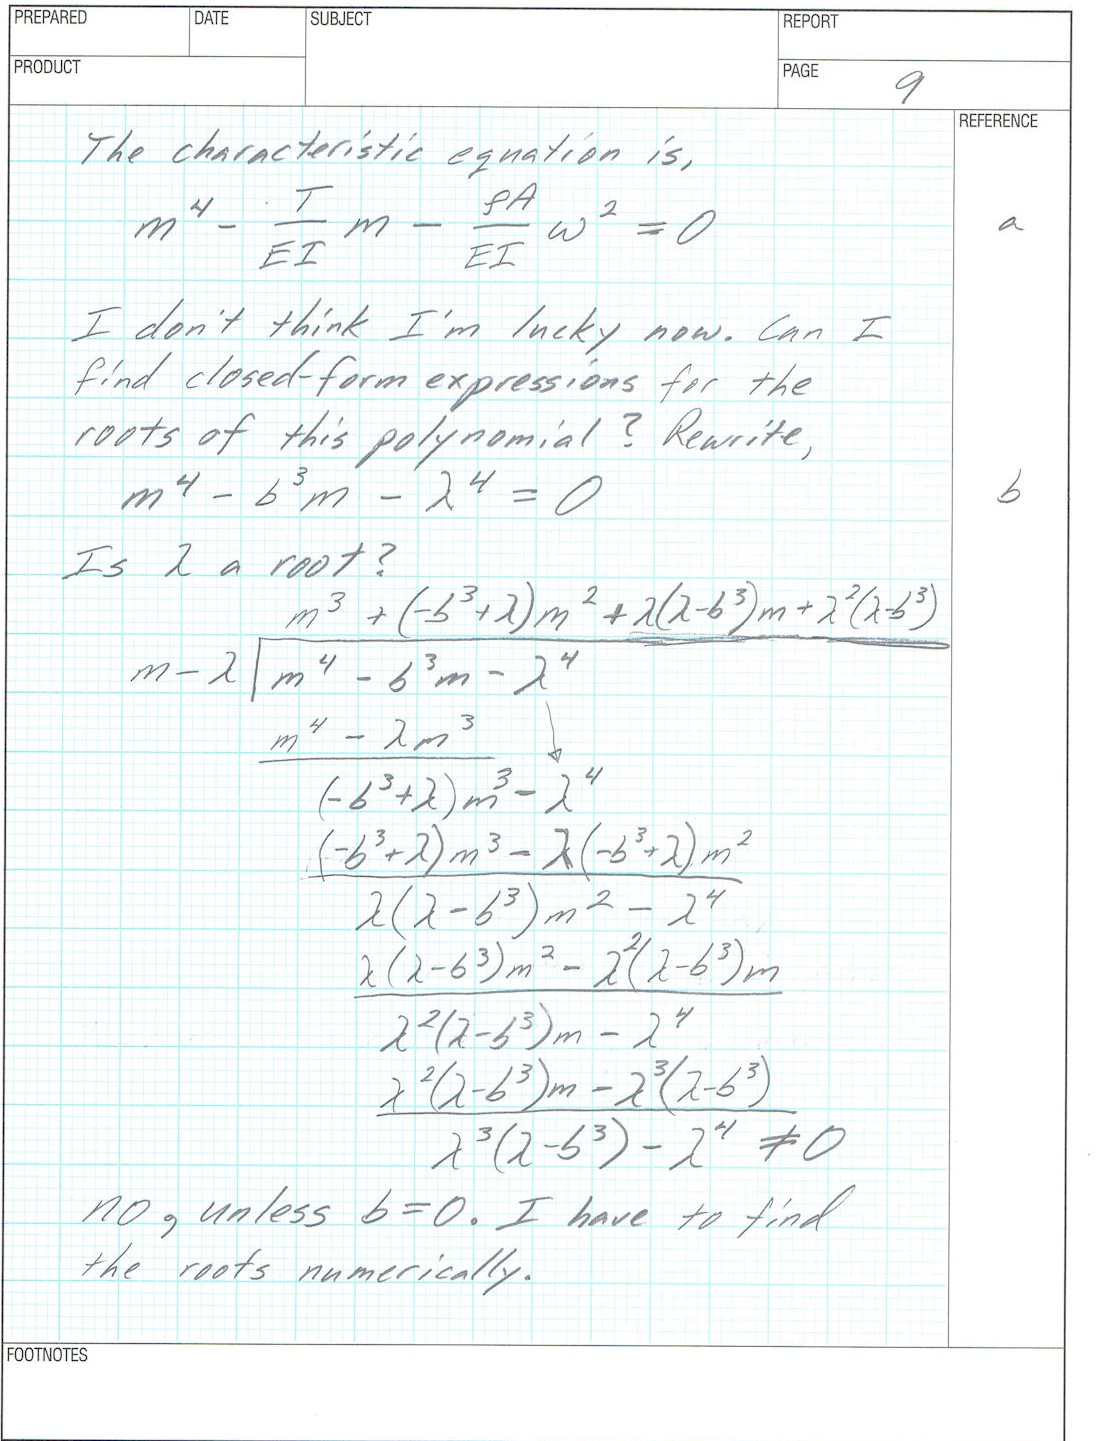 PREPARED DATE SUBJECT REPORT
PRODUCT PAGE 9
REFERENCE
The characteristic equation is,
m⁴ - T/EI m - ρA/EI ω² = 0 a
I don't think I'm lucky now. Can I
find closed-form expressions for the
roots of this polynomial? Rewrite,
m⁴ - b³m - λ⁴ = 0 b
Is λ a root?
m³ + (-b³+λ)m² + λ(λ-b³)m + λ²(λ-b³)
m - λ | m⁴ - b³m - λ⁴
m⁴ - λm³
(-b³+λ)m³ - λ⁴
(-b³+λ)m³ - λ(-b³+λ)m²
λ(λ-b³)m² - λ⁴
λ(λ-b³)m² - λ²(λ-b³)m
λ²(λ-b³)m - λ⁴
λ²(λ-b³)m - λ³(λ-b³)
λ³(λ-b³) - λ⁴ ≠ 0
no, unless b=0. I have to find
the roots numerically.
FOOTNOTES